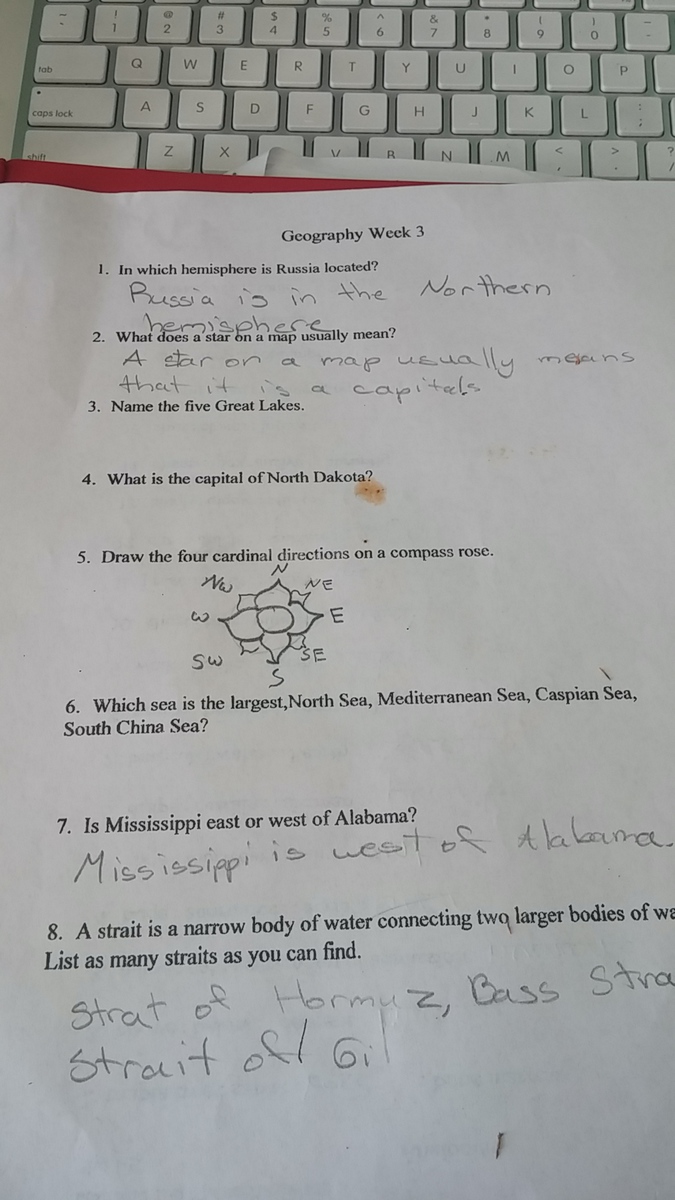 ! @ # $ % ^ & * ( ) _
1 2 3 4 5 6 7 8 9 0 -
tab Q W E R T Y U I O P
caps lock A S D F G H J K L : ;
shift Z X V B N M < , > . ? /
Geography Week 3
1. In which hemisphere is Russia located?
Russia is in the Northern
hemisphere
2. What does a star on a map usually mean?
A star on a map usually means
that it is a capitals
3. Name the five Great Lakes.
4. What is the capital of North Dakota?
5. Draw the four cardinal directions on a compass rose.
N
NW NE
W E
SW SE
S
6. Which sea is the largest,North Sea, Mediterranean Sea, Caspian Sea,
South China Sea?
7. Is Mississippi east or west of Alabama?
Mississippi is west of Alabama.
8. A strait is a narrow body of water connecting two larger bodies of wa
List as many straits as you can find.
Strat of Hormuz, Bass Stra
Strait of Gil